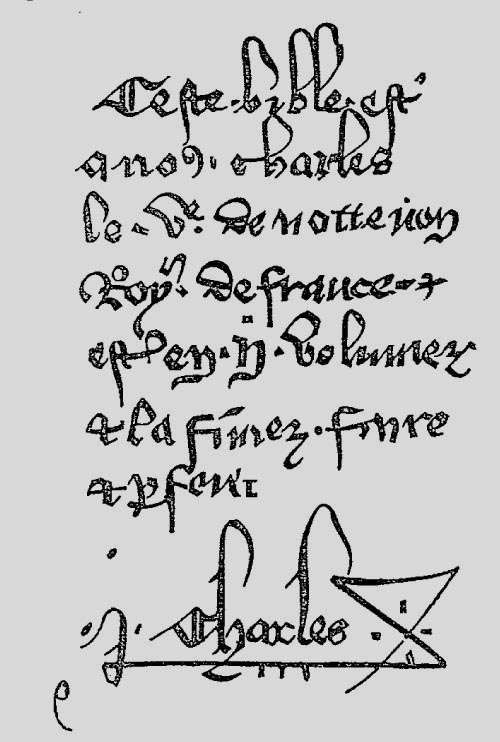 Ceste · bible · est
a noꝯ · charles
le · Vᵉ · De notre non
Roy · De france · ⁊
est en · ij · volumez
⁊ la fimez · faire
⁊ ꝑfere
Charles